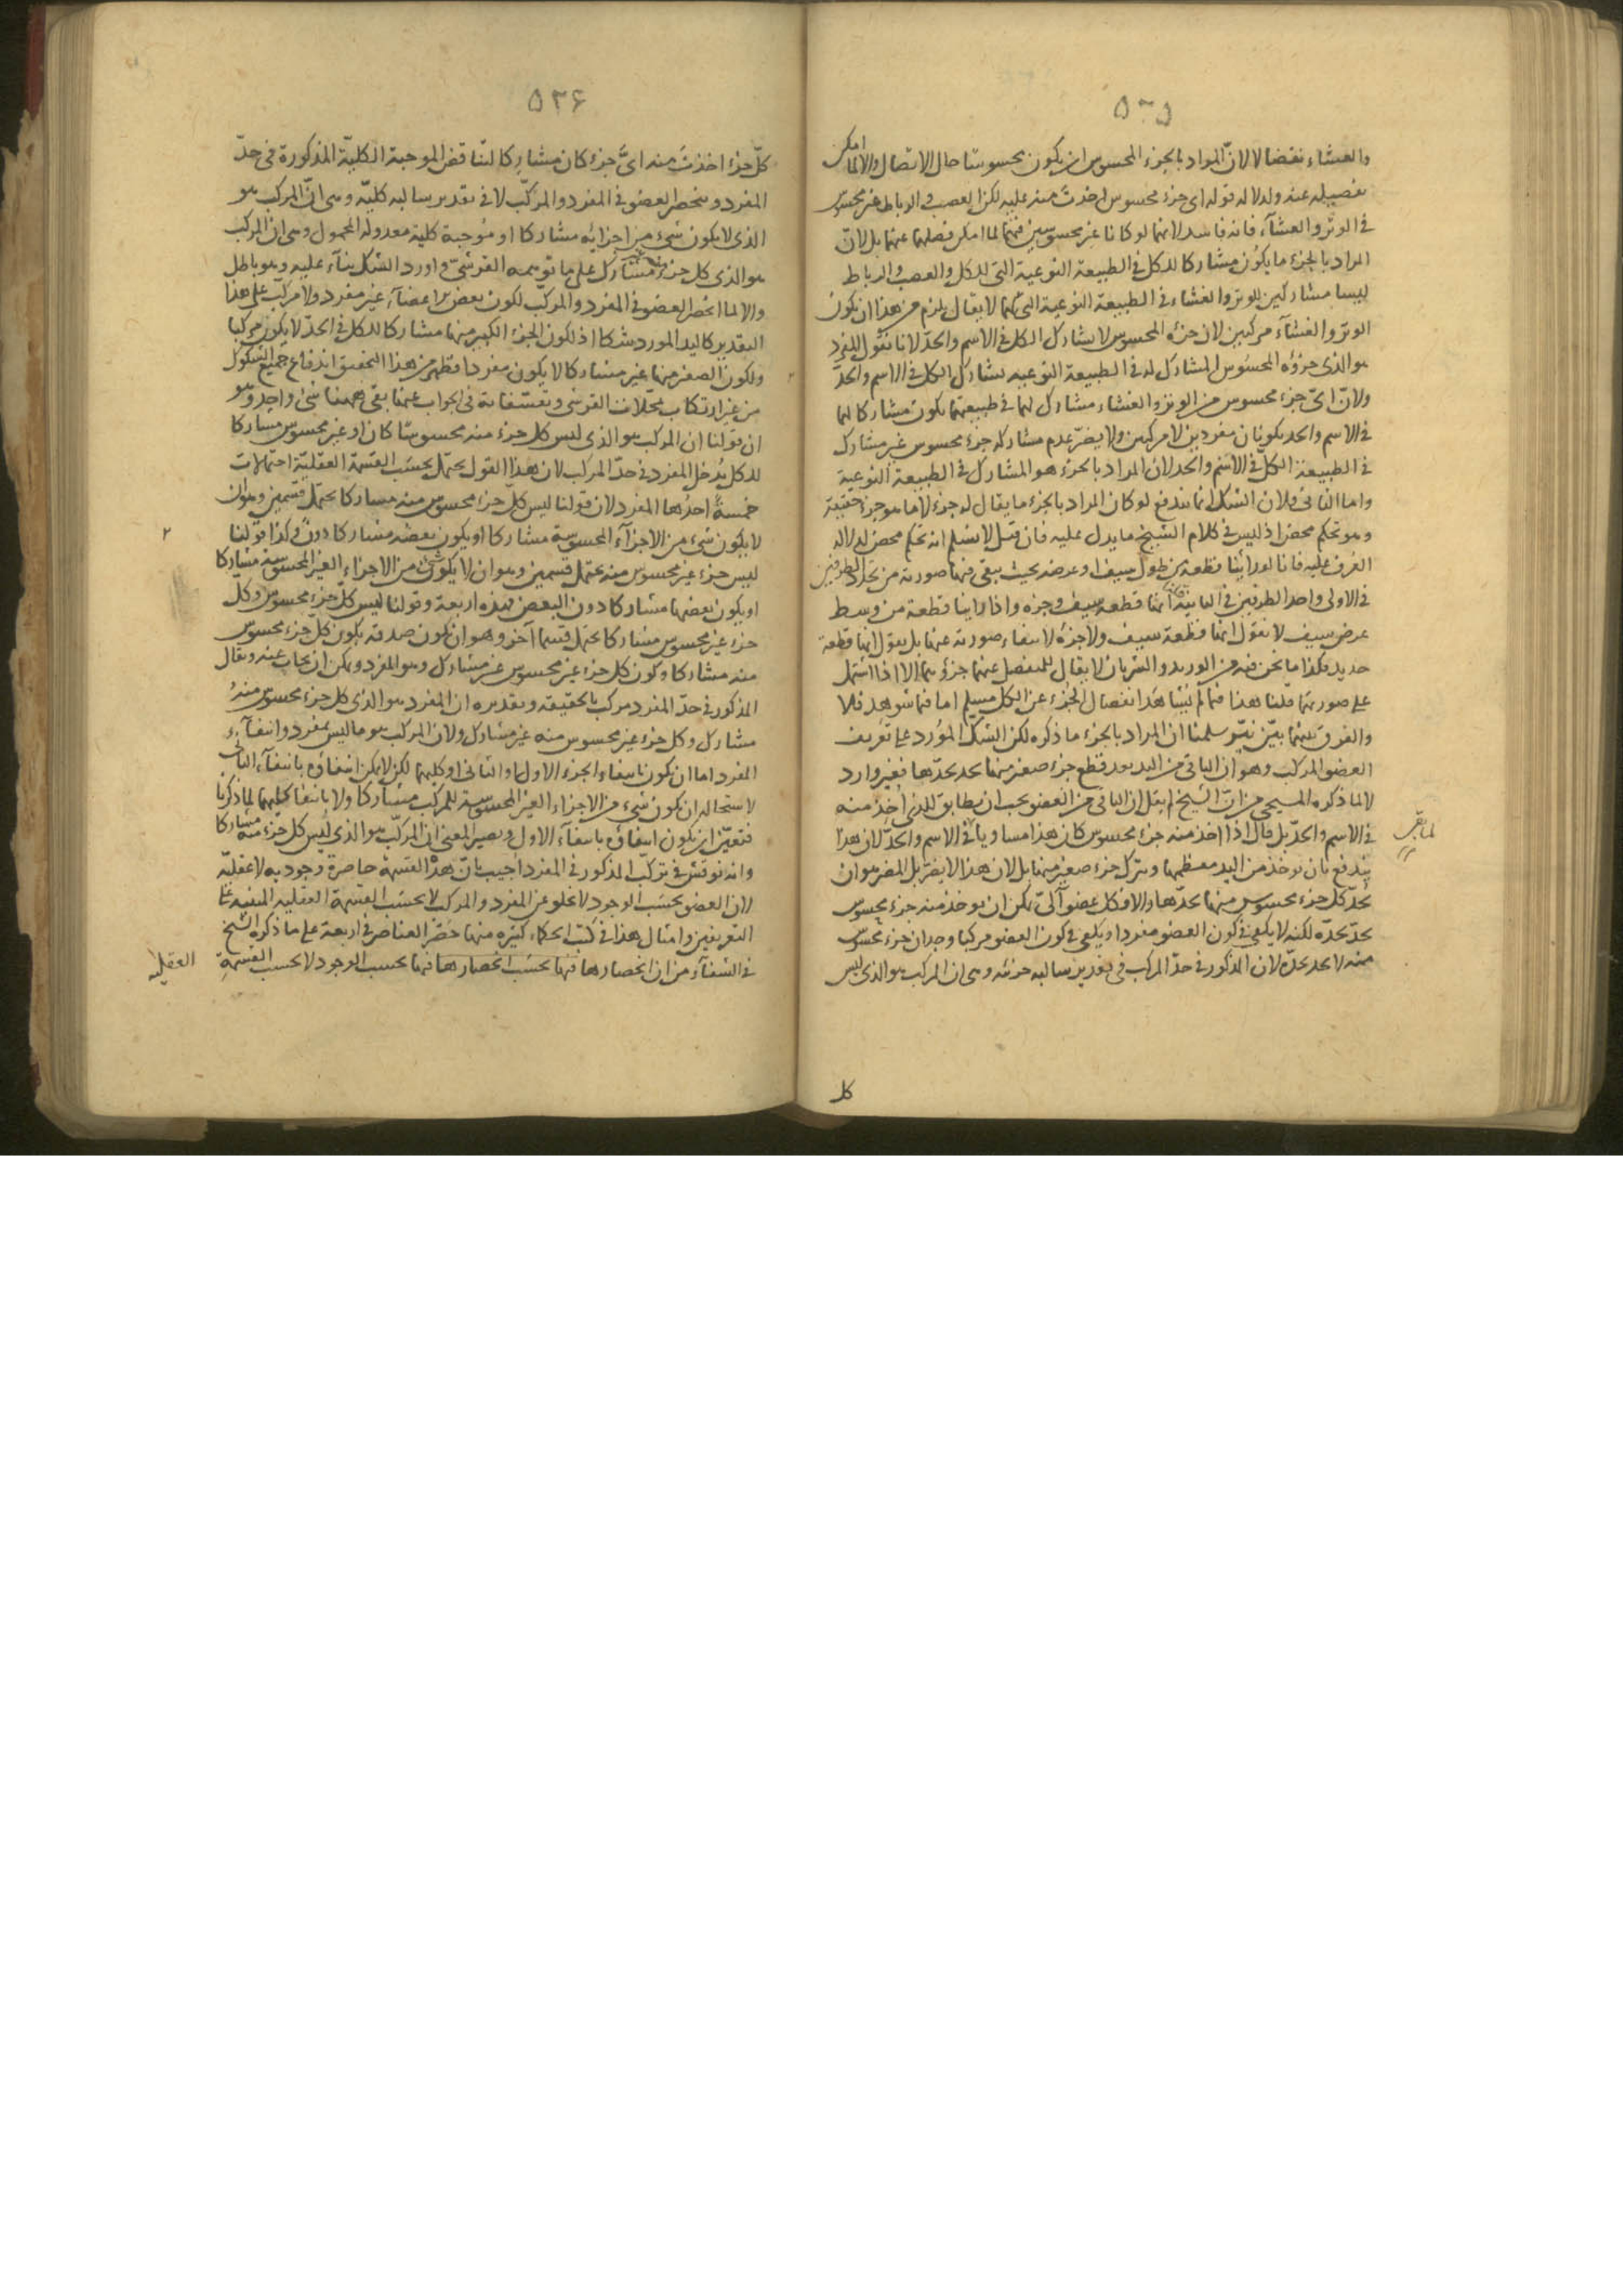 ٥٣٥
والغشاء نقضا لا لان المراد بالجزء المحسوس ان يكون محسوسا حال الاتصال والا لما امكن
تفصيله عنه ولدلالة قوله اى جزء محسوس اخذت منه عليه لكن العصب فى الرباط غير محسوس
فى الوتر والغشآء فانه فاسد لانهما لو كانا غير محسوسين فيهما لما امكن فصلهما عنهما بل لانّ
المراد بالجزء ما يكون مشاركا للكل فى الطبيعة النوعية التى للكل والعصب والرباط
ليسا مشاركين للوتر والغشاء فى الطبيعة النوعية التى لهما لا يقال يلزم من هذا ان يكون
الوتر والغشآء مركبين لان جزءه المحسوس لا يشارك الكل فى الاسم والحد لانا نقول المفرد
هو الذى جزؤه المحسوس المشارك له فى الطبيعة النوعيه يشارك الكل فى الاسم والحدّ
ولانّ اىّ جزء محسوس من الوتر والغشاء مشارك لهما فى طبيعتهما يكون مشاركا لهما
فى الاسم والحد يكونان مفردين لا مركبين ولا يضرّ عدم مشاركة جزء محسوس غير مشارك
فى الطبيعة الكلّ فى الاسم والحد لان المراد بالجزء هو المشارك فى الطبيعة النوعية
واما الثانى فلان الشك انما يندفع لو كان المراد بالجزء ما يقال له جزء لا ما هو جزء حقيقة
وهو تحكم محض اذ ليس فى كلام الشيخ ما يدل عليه فان قيل لا نسلم انه تحكم محض لدلالة
العرف عليه فانا لو راينا قطعة من طول سيف او عرضه بحيث يبقى فيها صورته من تحدد الطرفين
فى الاولى واحد الطرفين فى الثانية قلنا انها قطعة سيف وجزه واذا راينا قطعة من وسط
عرض سيف لا نقول انها قطعة سيف ولا جزؤه لانتفاء صورته عنها بل نقول انها قطعة
حديد فكذا ما نحن فيه من الوريد والشريان لا يقال للمنفصل عنهما جزؤهما الا اذا اشتمل
على صورتهما قلنا هذا فيما لم يشاهد انفصال الجزء عن الكل مسلم اما فيما شوهد فلا
والفرق بينهما بيّن نيّر سلمنا ان المراد بالجزء ما ذكره لكن الشك المورد على تعريف
العضو المركب وهو ان الباقى من اليد بعد قطع جزء صغير منها يحد بحدها فغير وارد
لا لما ذكره المسيحى من انّ الشيخ لم يقل ان الباقى من العضو يجب ان يطابق للذى اخذ منه
فى الاسم والحدّ بل قال اذا اخذ منه جزء محسوس كان هذا مساويا فى الاسم والحدّ لان هذا
يندفع بان يوخذ من اليد معظمها ويترك جزء صغير منها بل لان هذا لا يضر بل المضر هو ان
يُحدّ كل جزء محسوس منها بحدّها والا فكل عضو آلىّ يمكن ان يوخذ منه جزء محسوس
يحدّ بحدّه لكنه لا يكفى فى كون العضو مفردا ويكفى فى كون العضو مركبا وجدان جزء محسوس
منه لا يحد بحدّه لان المذكور فى حدّ المركب فى تقدير سالبه جزئيه وهى ان المركب هو الذى ليس
كل
٥٣۶
كلّ جزء اخذتَ منه اىَّ جزء كان مشاركا لتناقض الموجبة الكلية المذكورة فى حدّ
المفرد وينحصر العضو فى المفرد والمركّب لا فى تقدير سالبه كليّه وهى انّ المركب هو
الذى لا يكون شىء من اجزائه مشاركا او موجبة كلية معدوله المحمول وهى ان المركب
هو الذى كل جزء منه غير مشارك على ما توهمه القرشى واورد الشك بنآء عليه وهو باطل
والا لما انحصر العضو فى المفرد والمركّب لكون بعض الاعضآء غير مفرد ولا مركّب على هذا
التقدير كاليد المورد شكا اذ لكون الجزء الكبير منها مشاركا للكل فى الحدّ لا يكون مركبا
ولكون الصغير منها غير مشارك لا يكون مفردا فظهر من هذا التحقيق اندفاع جميع الشكوك
من غير ارتكاب تمحّلات القرشى وتعسّفاته فى الجواب عنها بقى ههنا شىء واحد وهو
ان قولنا ان المركب هو الذى ليس كل جزء منه محسوسا كان او غير محسوس مشاركا
للكل يُدخل المفرد فى حدّ المركب لان هذا القول يحتمل بحسَب القسمة العقليّة احتمالات
خمسةً احدُها المفرد لان قولنا ليس كلّ جزء محسوس منه مشاركا يحتمل قسمين وهو ان
لا يكون شىء من الاجزآء المحسوسة مشاركا او يكون بعضه مشاركا دون وكذا قولنا
ليس جزء غير محسوس منه يحتمل قسمين وهو ان لا يكون شىء من الاجزاء الغير المحسوسة مشاركا
او يكون بعضها مشاركا دون البعض فهذه اربعة وقولنا ليس كلّ جزء محسوس وكلّ
جزء غير محسوس مشاركا يحتمل قسما آخر وهو ان يكون صدقه بكون كلّ جزء محسوس
منه مشاركا وكون كل جزء غير محسوس غير مشارك وهو المفرد ويمكن ان يجاب عنه ويقال
المذكور فى حدّ المفرد مركب بالحقيقه وتقديره ان المفرد هو الذى كل جزء محسوس منهُ
مشارك وكل جزء غير محسوس منه غير مشارك ولان المركب هو ما ليس بمفرد وانتفآء
المفرد اما ان يكون بانتفاء الجزء الاول او الثانى او كليهما لكن لا يمكن انتفاؤه بانتفآء الثانى
لاستحالة ان يكون شىء من الاجزاء الغير المحسوسة للمركب مشاركا ولا بانتفاء كليهما لما ذكرنا
فتعيّن ان يكون انتفاؤه بانتفآء الاول ويصير المعنى ان المركّب هو الذى ليس كل جزء منه مشاركا
وانه نوقش فى تركّب المذكور فى المفرد اُجيب بانّ هذه القسمة حاصرة وجوديه لا عقليّه
لان العضو بحسَب الوجود لا يخلو عن المفرد والمركب لا بحسَب القسمة العقليه المبنيه على
التعريفين وامثال هذا فى كتب الحكماء كثيره منها حصر العناصر فى اربعة على ما ذكره الشيخ
فى الشفآء من ان انحصارها فيها بحسَب انحصارها فيها بحسب الوجود لا بحسب القسمةِ
العقليه